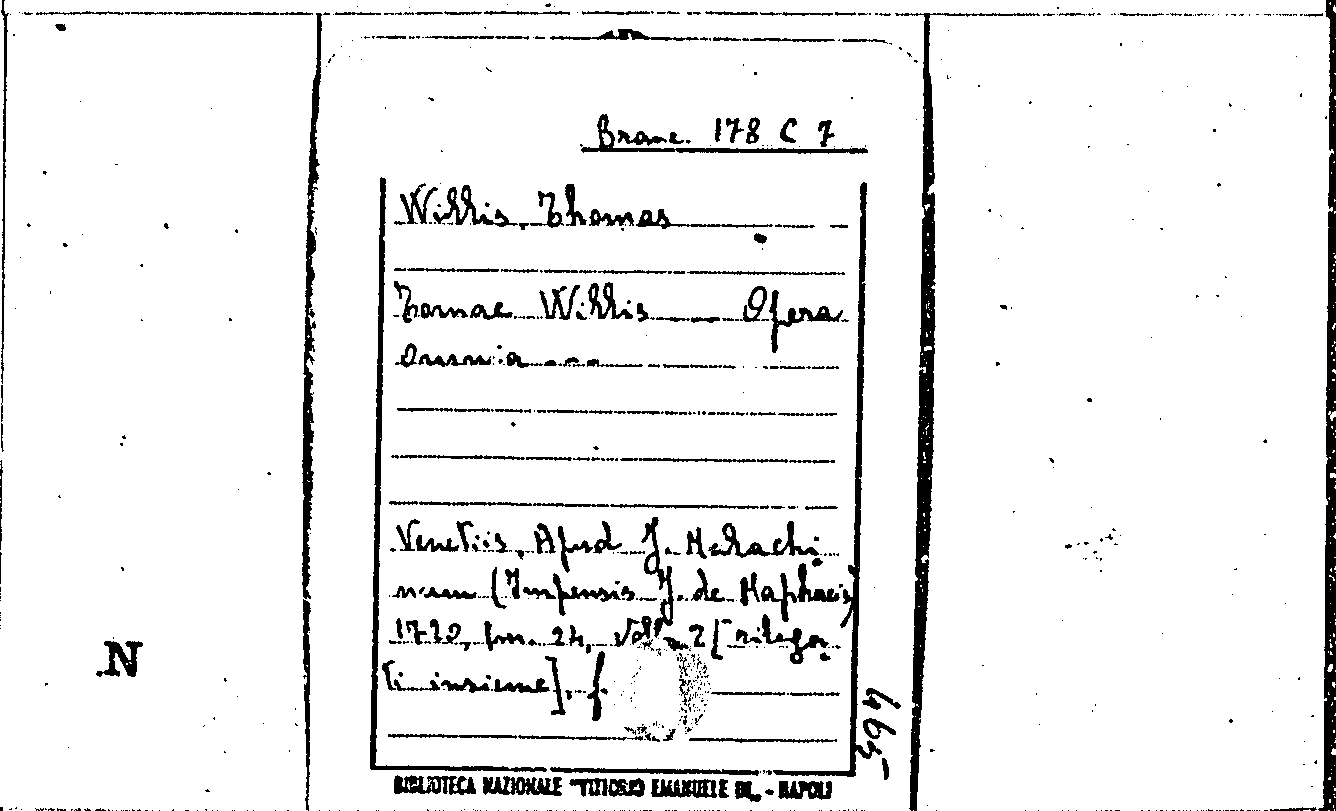 Branc. 178 C 7
Willis, Thomas
Tomae Willis ___ Opera
omnia ...
Venetiis, Apud J. Malachi
num (Impensis J. de Raphaelis)
1720, cm. 24, Voll. 2 [rilega
ti insieme]. f.
465
N.
BIBLIOTECA NAZIONALE "VITTORIO EMANUELE III„ - NAPOLI